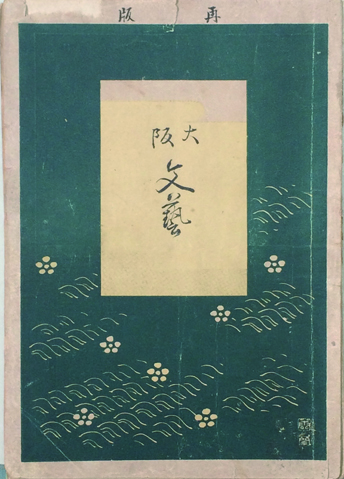 再版
大阪
文藝